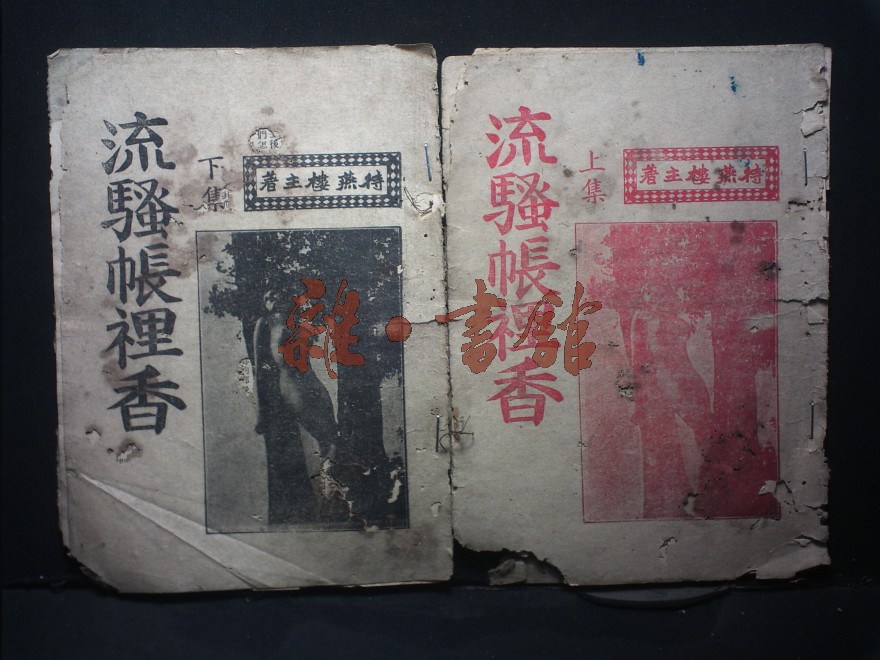 流騷帳裡香
下集
著主樓燕待
流騷帳裡香
上集
著主樓燕待
雜·書館